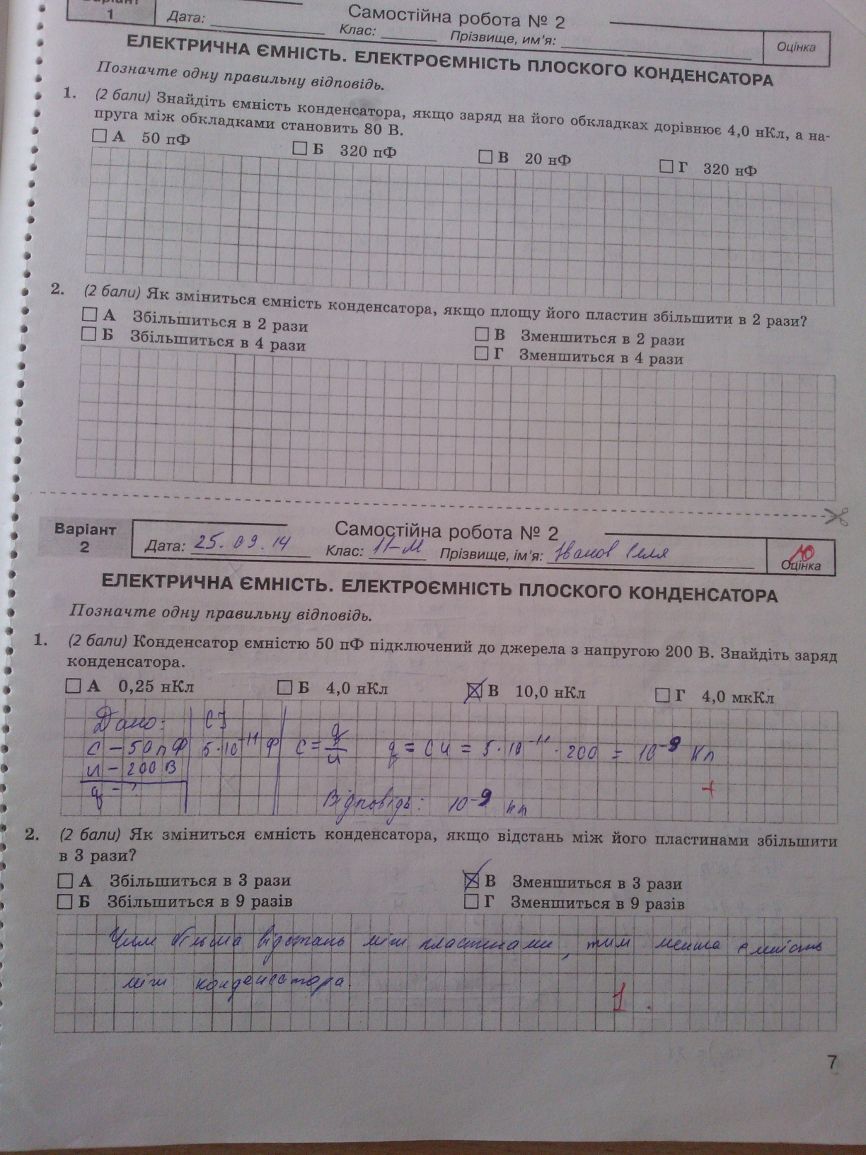 Варіант
1
Самостійна робота № 2
Дата:
Клас:
Прізвище, им'я:
Оцінка
ЕЛЕКТРИЧНА ЄМНІСТЬ. ЕЛЕКТРОЄМНІСТЬ ПЛОСКОГО КОНДЕНСАТОРА
Позначте одну правильну відповідь.
1. (2 бали) Знайдіть ємність конденсатора, якщо заряд на його обкладках дорівнює 4,0 нКл, а на-
пруга між обкладками становить 80 В.
А 50 пФ Б 320 пФ В 20 нФ Г 320 нФ
2. (2 бали) Як зміниться ємність конденсатора, якщо площу його пластин збільшити в 2 рази?
А Збільшиться в 2 рази В Зменшиться в 2 рази
Б Збільшиться в 4 рази Г Зменшиться в 4 рази
Варіант
2
Самостійна робота № 2
Дата: 25.09.14 Клас: 11-М Прізвище, ім'я: Іванов Ілля
10
Оцінка
ЕЛЕКТРИЧНА ЄМНІСТЬ. ЕЛЕКТРОЄМНІСТЬ ПЛОСКОГО КОНДЕНСАТОРА
Позначте одну правильну відповідь.
1. (2 бали) Конденсатор ємністю 50 пФ підключений до джерела з напругою 200 В. Знайдіть заряд
конденсатора.
А 0,25 нКл Б 4,0 нКл В 10,0 нКл Г 4,0 мкКл
Дано: СІ
C – 50 пФ 5·10⁻¹¹ Ф C = q/u q = Cu = 5·10⁻¹¹·200 = 10⁻⁹ Кл
u – 200 В
q – ? +
Відповідь: 10⁻⁹ Кл
2. (2 бали) Як зміниться ємність конденсатора, якщо відстань між його пластинами збільшити
в 3 рази?
А Збільшиться в 3 рази В Зменшиться в 3 рази
Б Збільшиться в 9 разів Г Зменшиться в 9 разів
Чим більша відстань між пластинами, тим менша ємність
між конденсатора.
1.
7